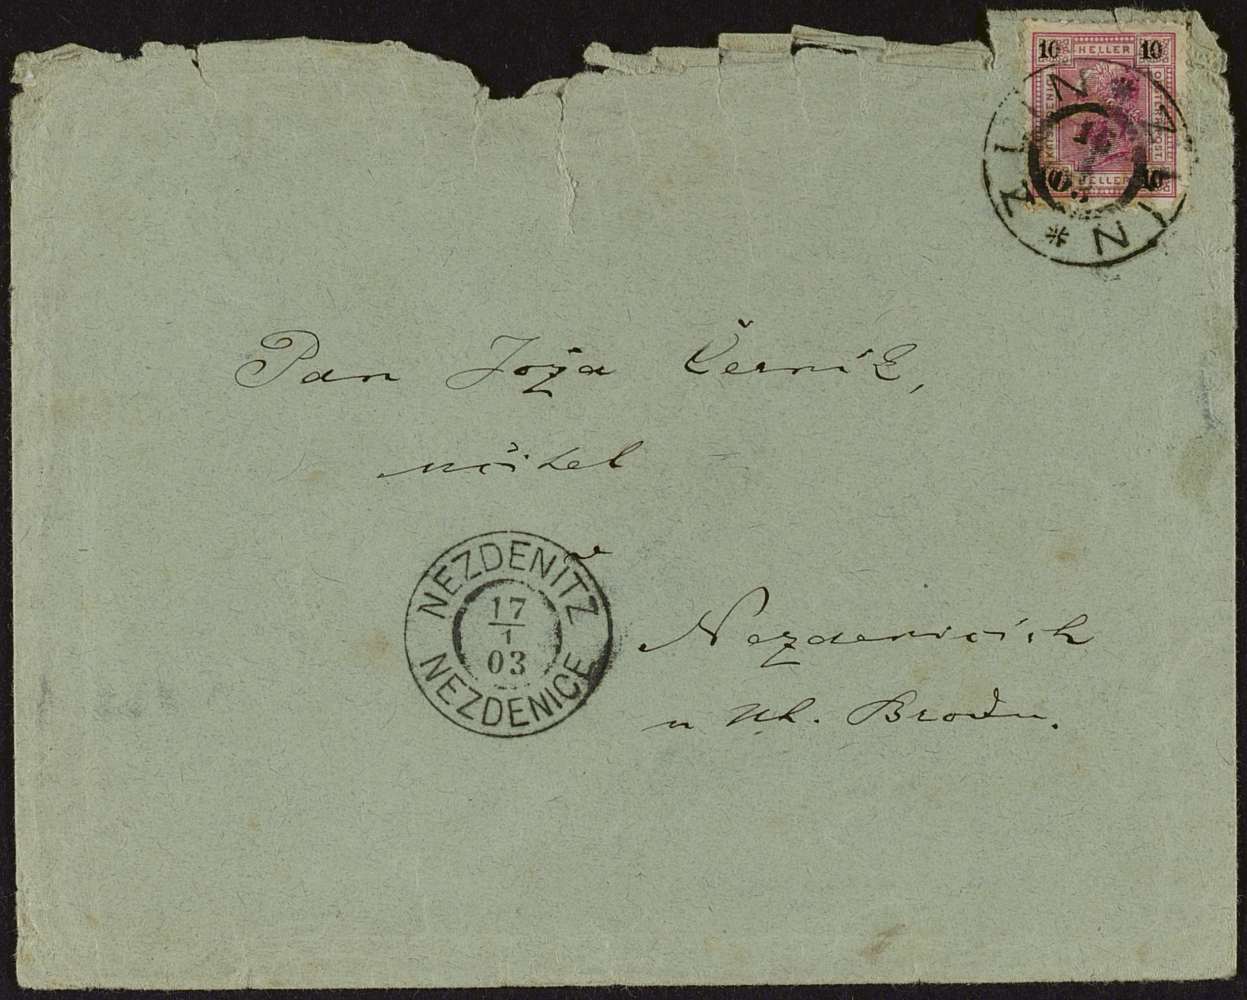 10 HELLER 10
10 HELLER 10
ZLIN * ZLIN *
16
Pan Joža Černík,
učitel
v
NEZDENITZ
17
1
03
NEZDENICE
Nezdenicích
u Uh. Brodu.